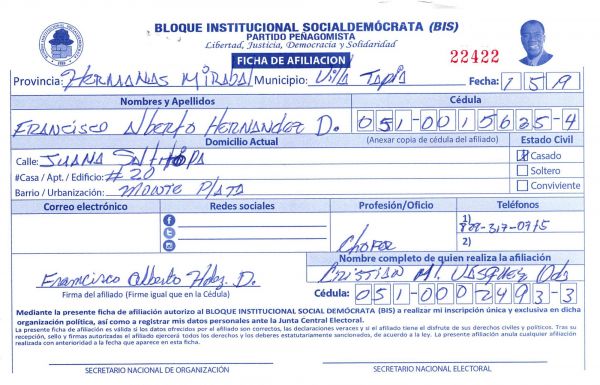 BLOQUE INSTITUCIONAL SOCIALDEMÓCRATA (BIS)
PARTIDO PEÑAGOMISTA
Libertad, Justicia, Democracia y Solidaridad
FICHA DE AFILIACION
22422
Provincia: HERMANAS MIRABAL Municipio: Villa Tapia Fecha: 1 5 19
Nombres y Apellidos Cédula
FRANCISCO Alberto HERNANDEZ D. 051-0015635-4
Domicilio Actual (Anexar copia de cédula del afiliado) Estado Civil
Calle: JUANA
Casado
#Casa / Apt. / Edificio: #20
Soltero
Barrio / Urbanización: MONTE PLATA
Conviviente
Correo electrónico Redes sociales Profesión/Oficio Teléfonos
1)
Chofer
2)
Nombre completo de quien realiza la afiliación
Francisco Alberto Hdez. D. CRISTIAN Ml. VASQUEZ
Firma del afiliado (Firme igual que en la Cédula) Cédula: 051-0002493-3
Mediante la presente ficha de afiliación autorizo al BLOQUE INSTITUCIONAL SOCIAL DEMÓCRATA (BIS) a realizar mi inscripción única y exclusiva en dicha
organización política, así como a registrar mis datos personales ante la Junta Central Electoral.
La presente ficha de afiliación es válida si los datos ofrecidos por el afiliado son correctos, las declaraciones veraces y si el afiliado tiene el disfrute de sus derechos civiles y políticos. Tras su
recepción, sello y firmas autorizadas el afiliado ejercerá todos los derechos y los deberes estatutariamente sancionados, de acuerdo a la ley. La presente afiliación anula cualquier afiliación
realizada con anterioridad a la fecha que aparece en esta ficha.
SECRETARIO NACIONAL DE ORGANIZACIÓN SECRETARIO NACIONAL ELECTORAL